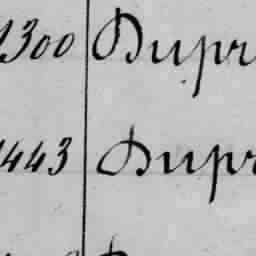 1300 Dupr
1443 Dupr